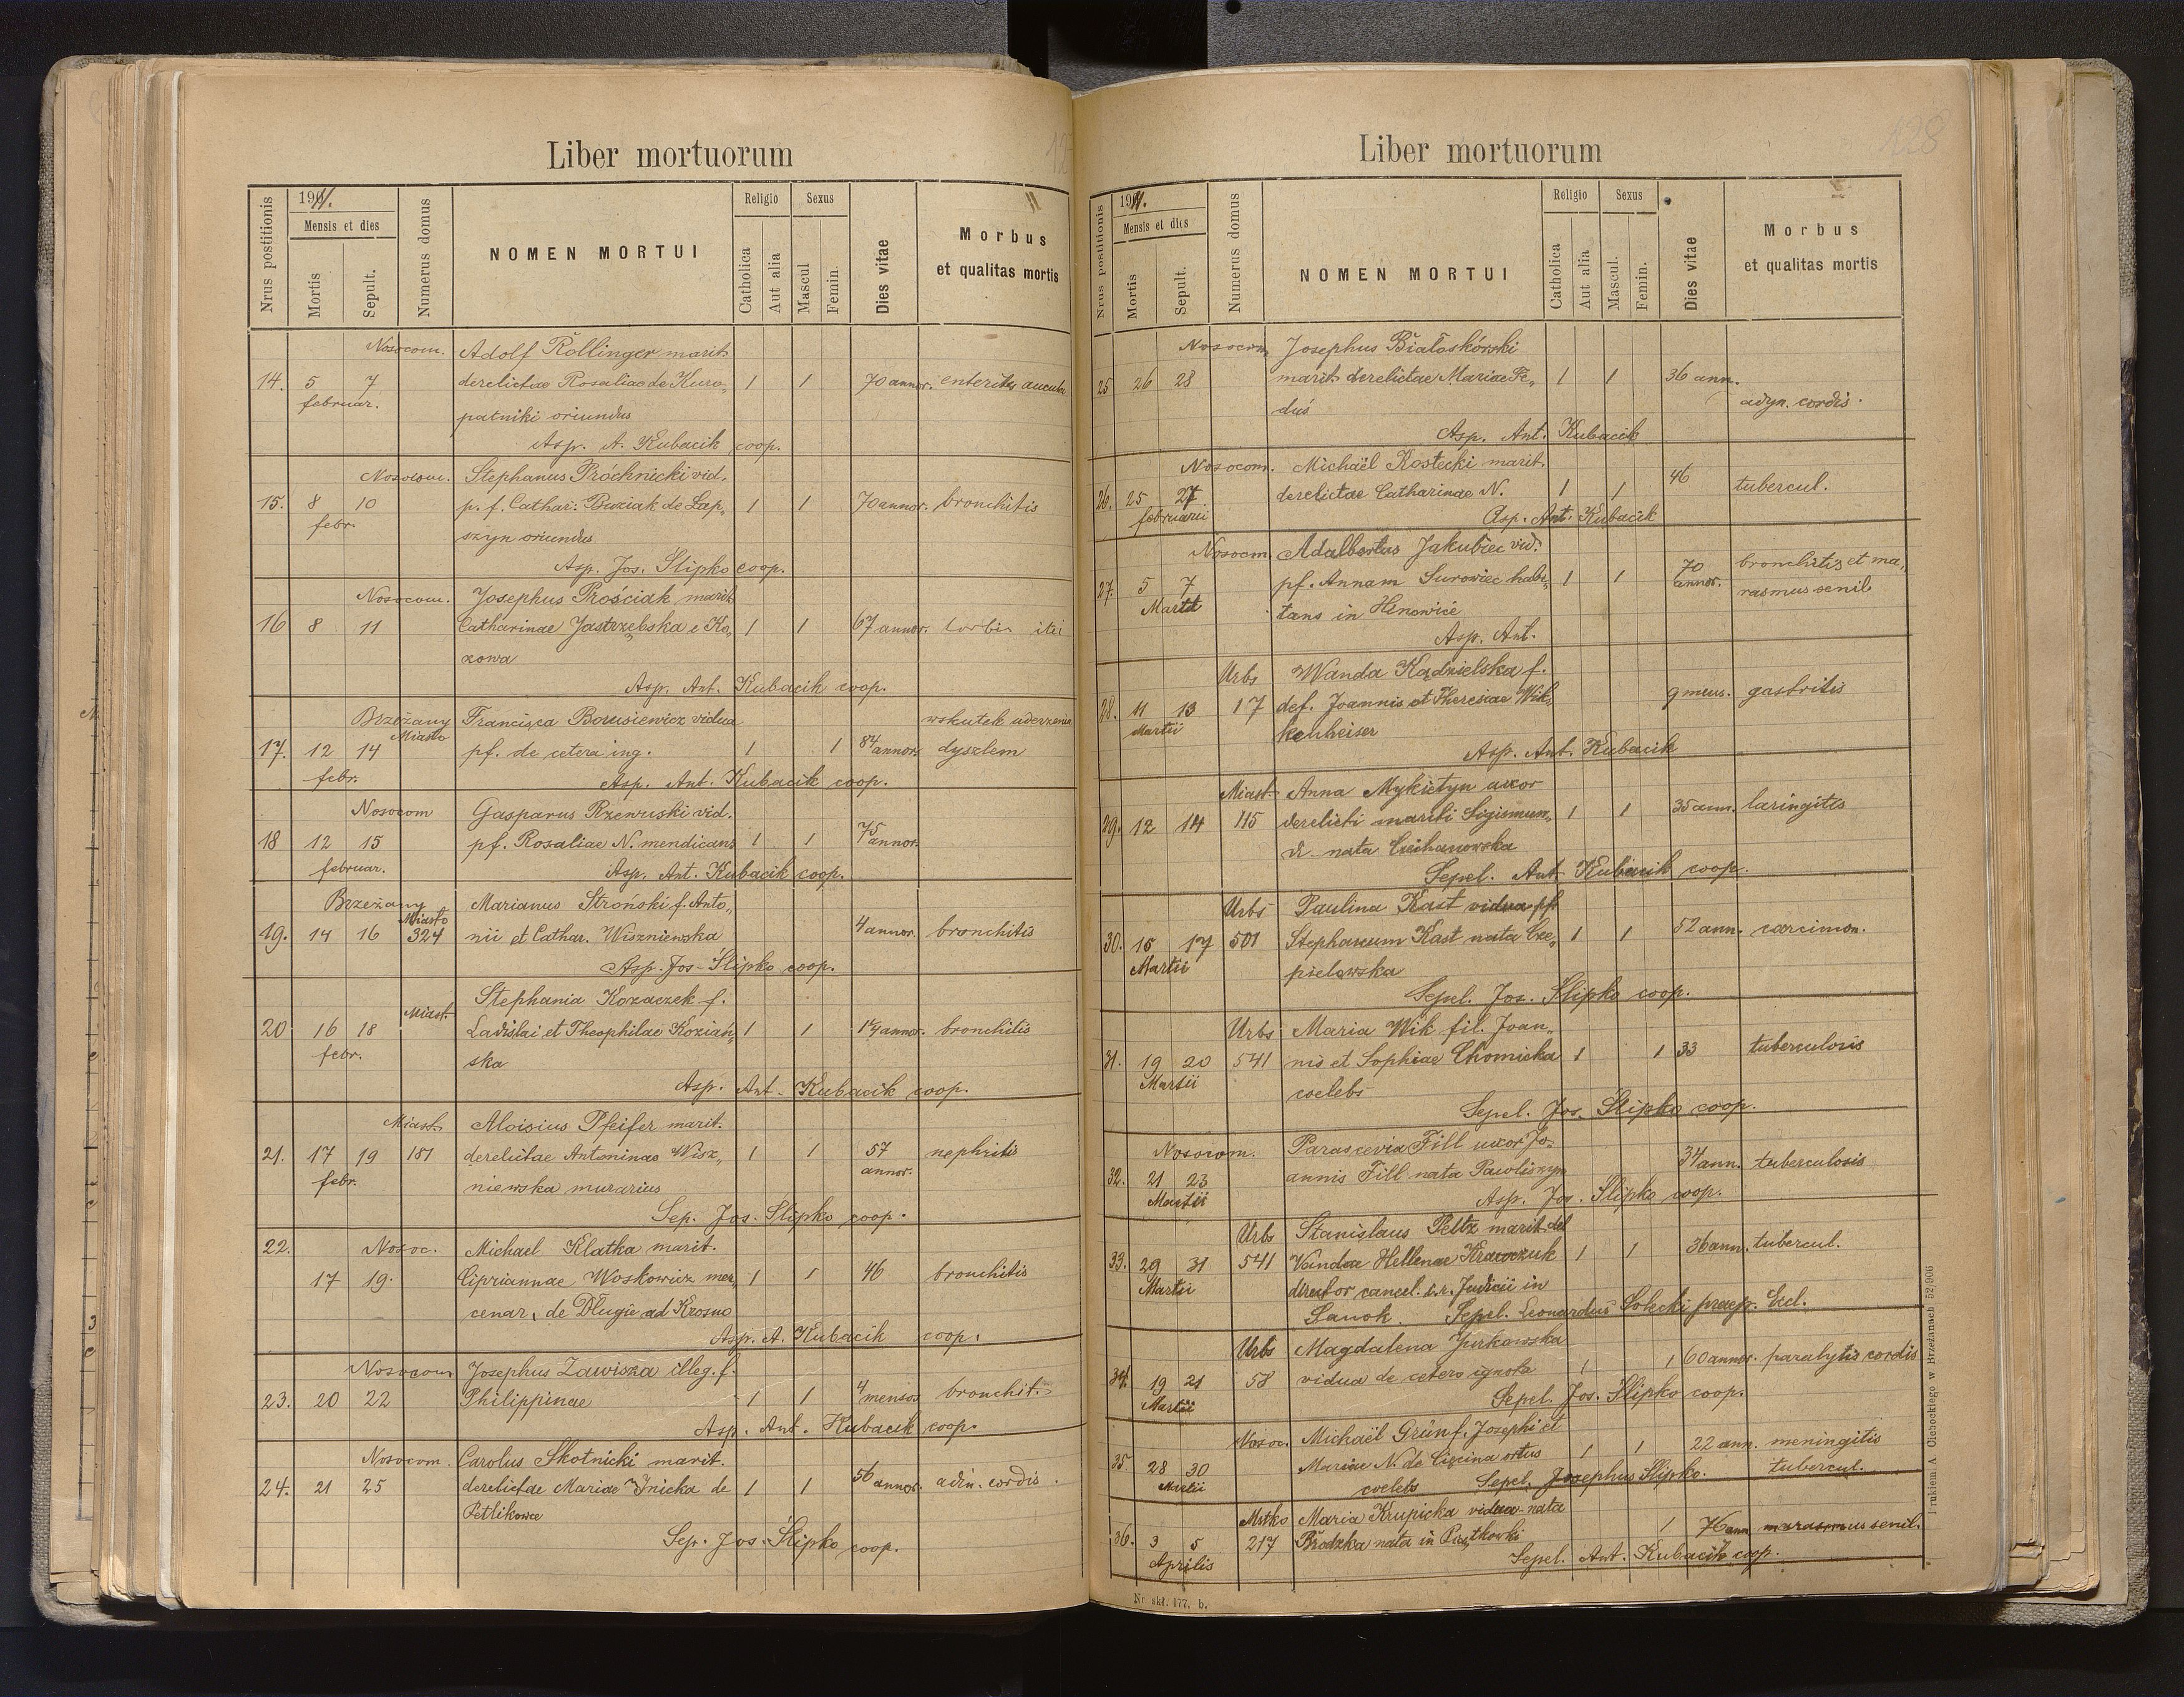 Liber mortuorum
Nrus postitionis
1911.
Mensis et dies
Mortis
Sepult.
Numerus domus
NOMEN MORTUI
Religio
Catholica
Aut alia
Sexus
Mascul
Femin.
Dies vitae
Morbus
et qualitas mortis
Nosocom. Adolf Röllinger marit.
14. 5 7 derelictae Rosaliae de Kuro„ 1 1 70 annor. enteritis
februar. patniki oriundus
Asp. A. Kubacik coop.
Nosocom. Stephanus Próchnicki vid.
15. 8 10 p. f. Cathar. Buziak de Łap„ 1 1 70 annor. bronchitis
febr. szyn oriundus
Asp. Jos. Ślipko coop.
Nosocom. Josephus Prościak marit.
16 8 11 Catharinae Jastrzębska e Ko„ 1 1 67 annor.
zowa
Asp. Ant. Kubacik coop.
Brzeżany Francisca Borusiewicz vidua wskutek uderzenia
Miasto
17. 12 14 pf. de cetera ing. 1 1 84 annor. dyszlem
febr. Asp. Ant. Kubacik coop.
Nosocom Gasparus Rzewuski vid.
18 12 15 pf. Rosaliae N. mendicans 1 1 75 annor.
februar. Asp. Ant. Kubacik coop.
Brzeżany Marianus Stroński f. Anto„
Miasto
19. 14 16 324 nii et Cathar. Wiszniewska 4 annor. bronchitis
Asp. Jos. Ślipko coop.
Stephania Kozaczek f.
Miast.
20 16 18 Ladislai et Theophilae Koziań„ 1 1 14 annor. bronchitis
febr. ska
Asp. Ant. Kubacik coop.
Miast. Aloisius Pfeifer marit.
21. 17 19 181 derelictae Antoninae Wisz„ 1 1 57 annor. nephritis
febr. niewska murarius
Sep. Jos. Slipko coop.
22. Nosoc. Michael Klatka marit.
17 19. Cipriannae Woskowicz mer„ 1 1 46 bronchitis
cenar. de Długie ad Krosno
Asp. A. Kubacik coop.
Nosocom Josephus Zawisza illeg. f.
23. 20 22 Philippinae 1 1 4 menses bronchitis
Asp. Ant. Kubacik coop.
Nosocom. Carolus Skotnicki marit.
24. 21 25 derelictae Mariae Ilnicka de 1 1 56 annor. adin. cordis.
Petlikowce
Sep. Jos. Ślipko coop.
128
Liber mortuorum
Nrus postitionis
1911.
Mensis et dies
Mortis
Sepult.
Numerus domus
NOMEN MORTUI
Religio
Catholica
Aut alia
Sexus
Mascul.
Femin.
Dies vitae
Morbus
et qualitas mortis
Nosocom Josephus Białoskórski
25 26 28 marit. derelictae Mariae Fe„ 1 1 36 ann.
duś adyn. cordis.
Asp. Ant. Kubacik
Nosocom. Michaël Kostecki marit.
26. 25 27 derelictae Catharinae N. 1 1 46 tubercul.
februarii Asp. Ant. Kubacik
Nosocom. Adalbertus Jakubiec vid.
27. 5 7 pf. Annam Surowiec habi„ 1 1 70 annor. bronchitis et ma„
Martii tans in Hinowice rasmus senil.
Asp. Ant.
Urbs Wanda Kądzielska f.
28. 11 13 17 def. Joannis et Theresiae Wik„ 9 mens. gastritis
Martii kenheiser
Asp. Ant. Kubacik
Miast. Anna Mykietyn uxor
29. 12 14 115 derelicti mariti Sigismun„ 1 1 35 ann. laringitis
di nata Ciechanowska
Sepel. Ant. Kubacik coop.
Urbs Paulina Kast vidua pf.
30. 15 17 501 Stephanum Kast nata Cze„ 1 1 52 ann. carcinom.
Martii pielowska
Sepel. Jos. Ślipko coop.
Urbs Maria Wik fil. Joan„
31. 19 20 541 nis et Sophiae Chomicka 1 1 33 tuberculosis
Martii coelebs
Sepel. Jos. Ślipko coop.
Nosocom. Parascevia Fill uxor Jo„
32. 21 23 annis Fill nata Pawliszyn 34 ann. tuberculosis
Martii Asp. Jos. Ślipko coop.
Urbs Stanislaus Peltz marit. del
33. 29 31 541 Vandae Hellenae Krawczuk 1 1 36 ann. tubercul.
Martii director cancel. c.r. Judicii in
Sanok. Sepel. Leonardus Solecki praep. Eccl.
Urbs Magdalena Jurkowska
34. 19 21 58 vidua de cetero ignota 1 1 60 annor. paralytis cordis
Martii Sepel. Jos. Slipko coop.
Nosoc. Michaël Grün f. Josephi et
35. 28 30 Mariae N. de Cięcina ortus 1 1 22 ann. meningitis
Martii coelebs Sepel. Josephus Slipko. tubercul.
Mstko Maria Krupicka vidua nata
36. 3 5 217 Brodzka nata in 1 76 ann marasmus senil.
Aprilis Sepel. Ant. Kubacik coop.
Nr skł. 177. b.
Drukiem A. Olchockiego w Brzeżanach 52/906